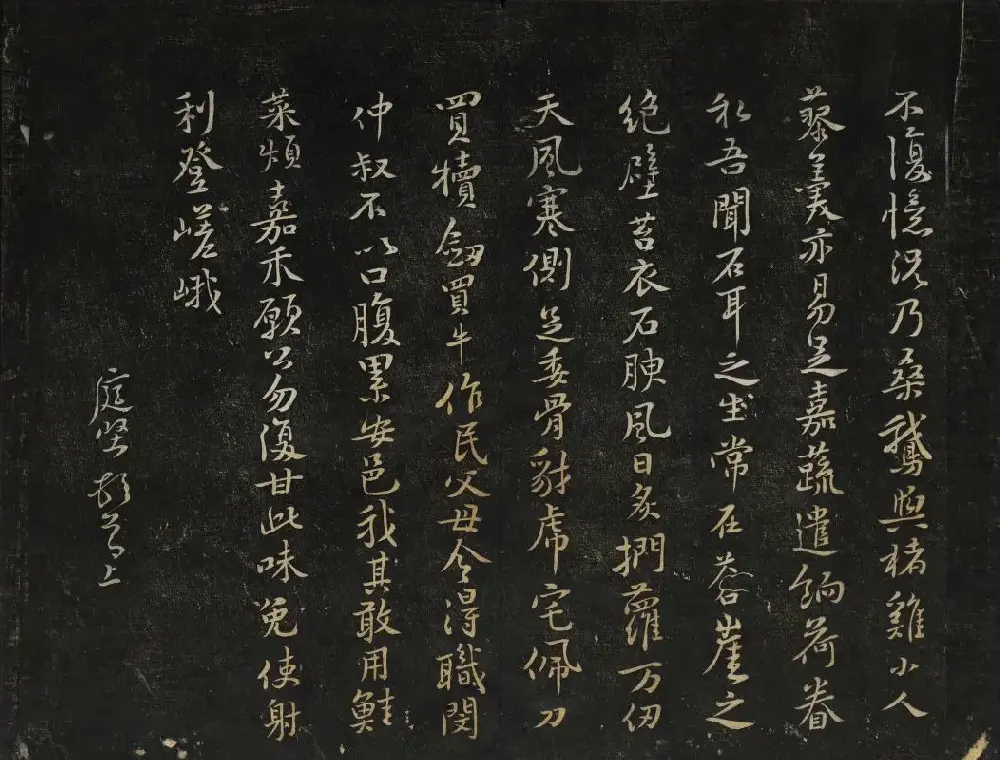 不復憶況乃桑鵝與楮雞小人
藜羹亦易足嘉蔬遣餉荷眷
私吾聞石耳之生常在蒼崖之
絕壁苔衣石腴風日炙捫蘿万仞
天風寒側足委骨豺虎宅佩刀
買犢劒買牛作民父母今得職閔
仲叔不以口腹累安邑我其敢用鮭
菜煩嘉禾願公勿復甘此味免使射
利登嵯峨
庭堅頓首上